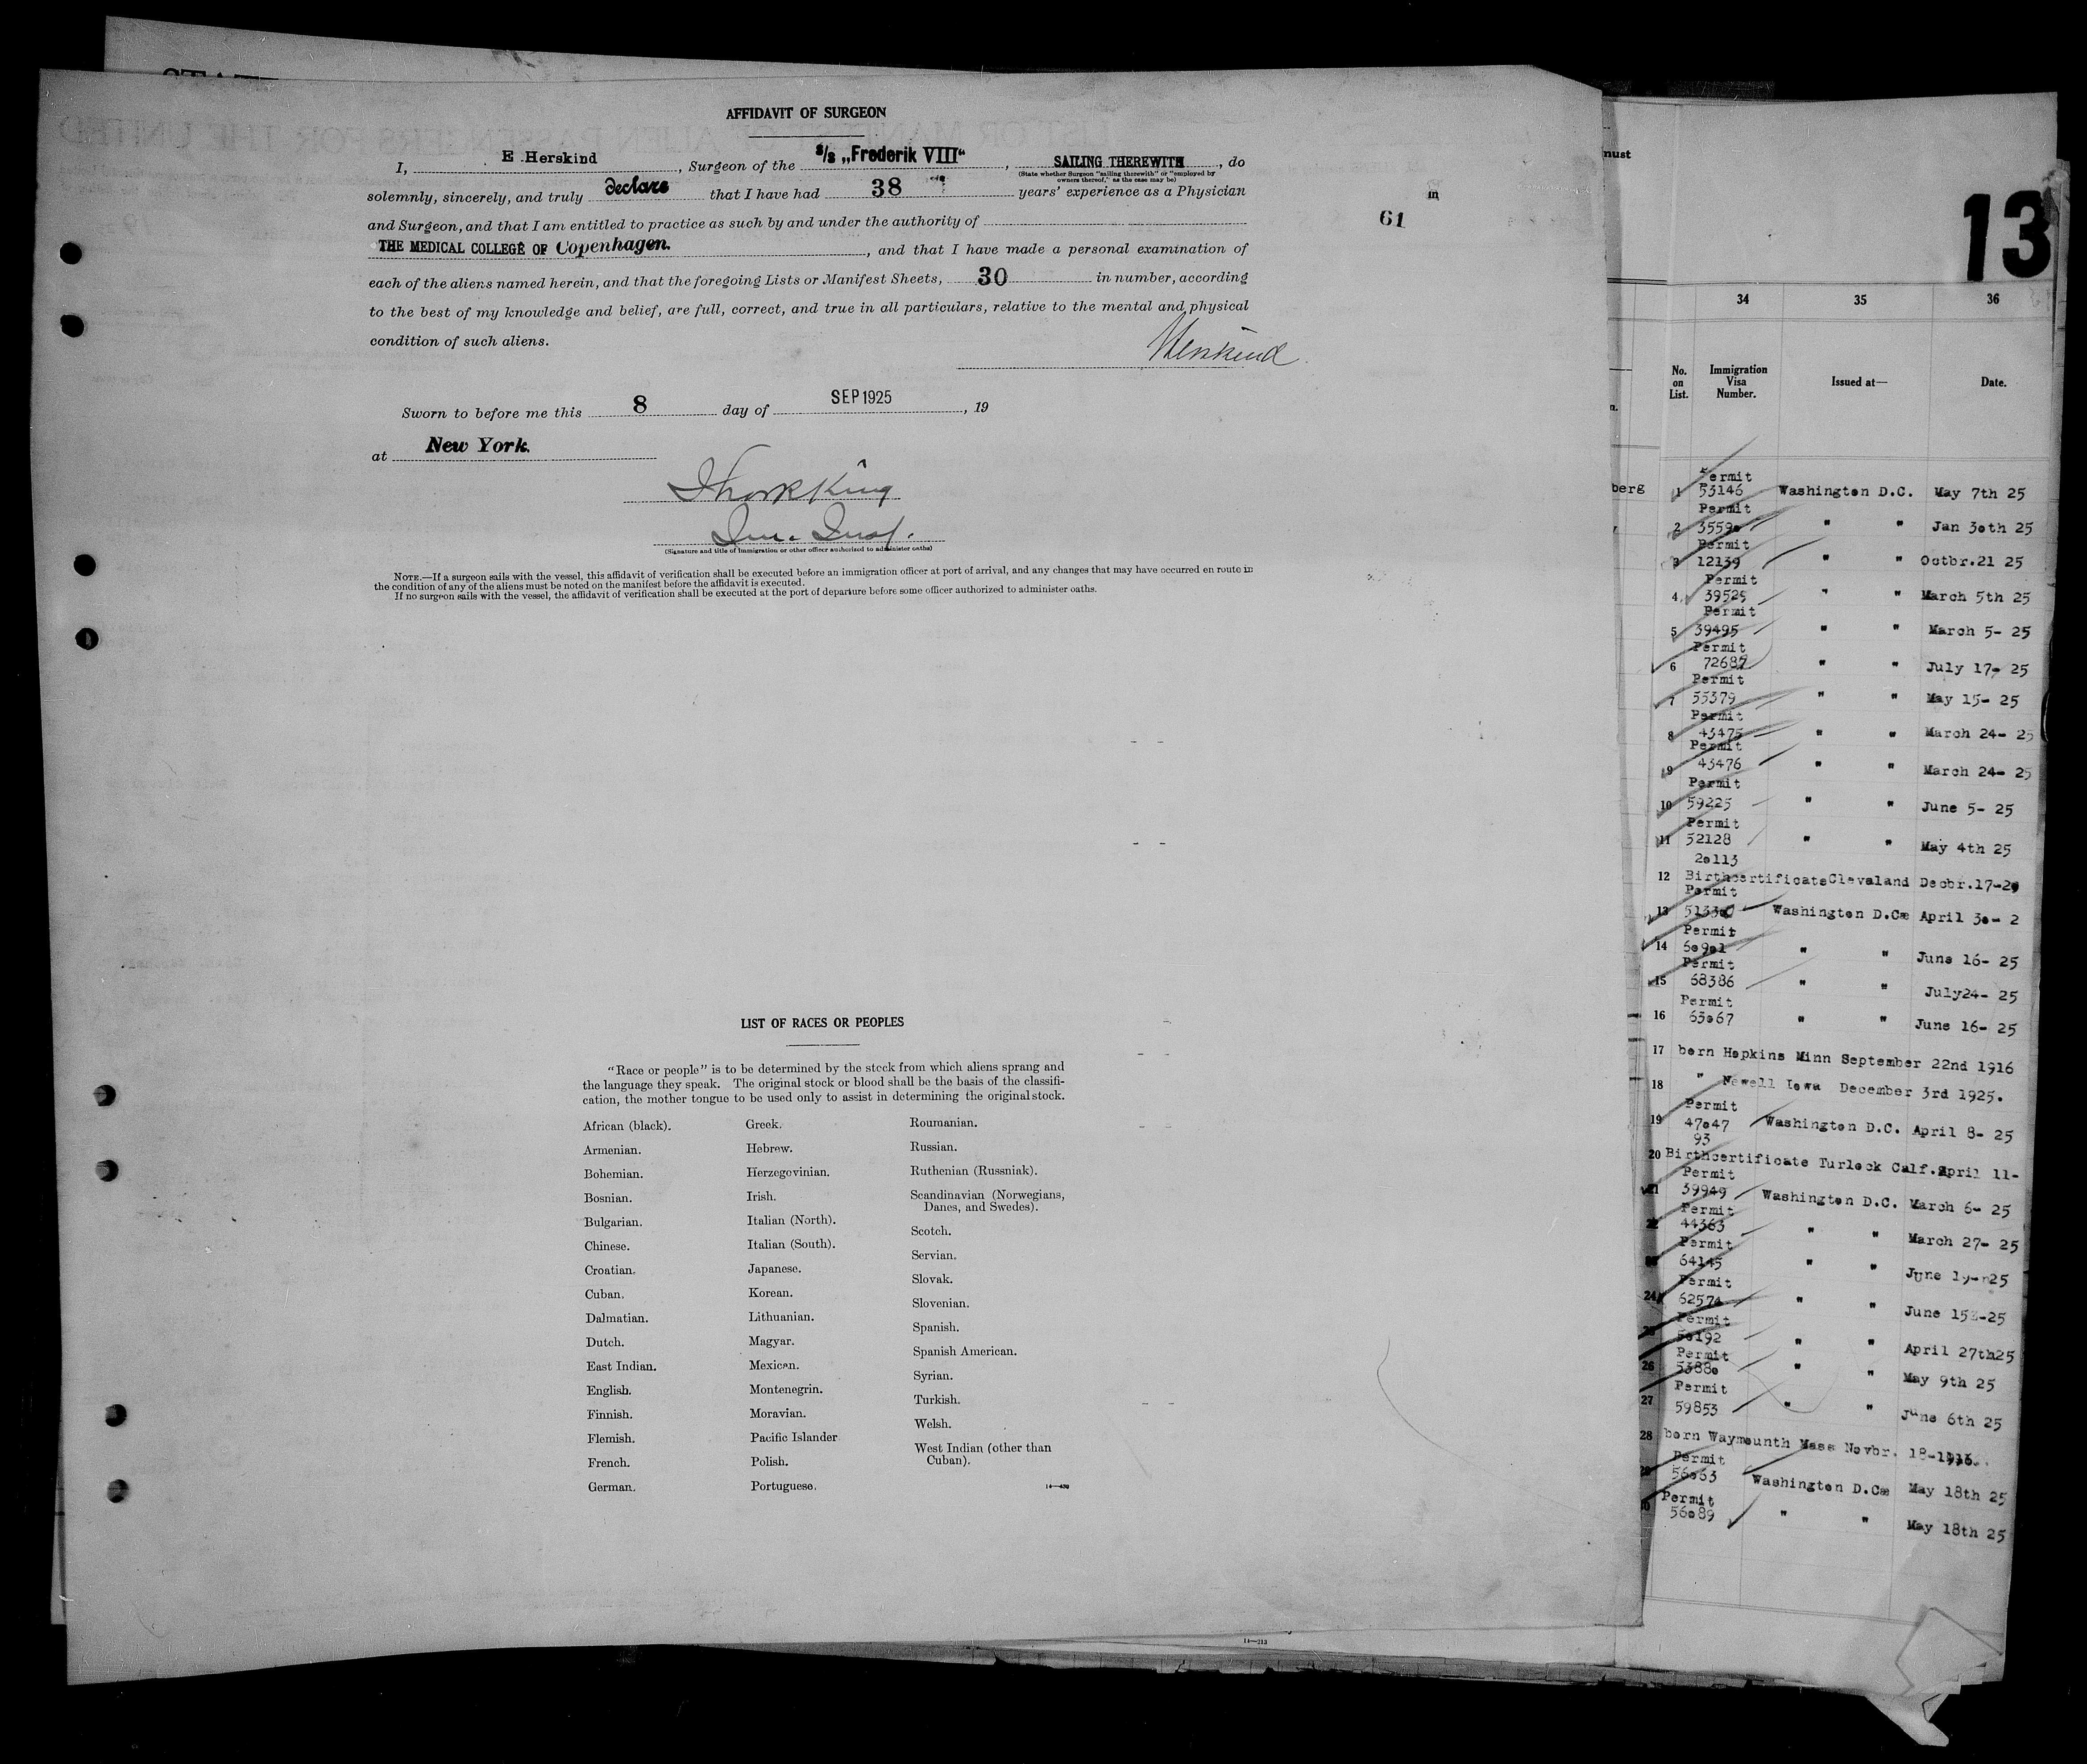 AFFIDAVIT OF SURGEON
I, E Herskind, Surgeon of the S/s „Frederik VIII“, SAILING THEREWITH, do
(State whether Surgeon "sailing therewith" or "employed by
owners thereof," as the case may be)
solemnly, sincerely, and truly declare that I have had 38 years' experience as a Physician
and Surgeon, and that I am entitled to practice as such by and under the authority of
THE MEDICAL COLLEGE OF Copenhagen., and that I have made a personal examination of
each of the aliens named herein, and that the foregoing Lists or Manifest Sheets, 30 in number, according
to the best of my knowledge and belief, are full, correct, and true in all particulars, relative to the mental and physical
condition of such aliens.
Herskind
Sworn to before me this 8 day of SEP 1925, 19
at New York.
King
Imm. Insp.
(Signature and title of Immigration or other officer authorized to administer oaths)
NOTE.—If a surgeon sails with the vessel, this affidavit of verification shall be executed before an immigration officer at port of arrival, and any changes that may have occurred en route in
the condition of any of the aliens must be noted on the manifest before the affidavit is executed.
If no surgeon sails with the vessel, the affidavit of verification shall be executed at the port of departure before some officer authorized to administer oaths.
61
in
LIST OF RACES OR PEOPLES
"Race or people" is to be determined by the stock from which aliens sprang and
the language they speak. The original stock or blood shall be the basis of the classifi-
cation, the mother tongue to be used only to assist in determining the original stock.
African (black).
Armenian.
Bohemian.
Bosnian.
Bulgarian.
Chinese.
Croatian.
Cuban.
Dalmatian.
Dutch.
East Indian.
English.
Finnish.
Flemish.
French.
German.
Greek.
Hebrew.
Herzegovinian.
Irish.
Italian (North).
Italian (South).
Japanese.
Korean.
Lithuanian.
Magyar.
Mexican.
Montenegrin.
Moravian.
Pacific Islander
Polish.
Portuguese.
Roumanian.
Russian.
Ruthenian (Russniak).
Scandinavian (Norwegians,
Danes, and Swedes).
Scotch.
Servian.
Slovak.
Slovenian.
Spanish.
Spanish American.
Syrian.
Turkish.
Welsh.
West Indian (other than
Cuban).
must
13
34 35 36
No. on List. Immigration Visa Number. Issued at— Date.
berg
Permit
1 53146 Washington D.C. May 7th 25
Permit
2 35590 " " Jan 30th 25
Permit
3 12139 " " Octbr.21 25
Permit
4 39529 " " March 5th 25
Permit
5 39495 " " March 5- 25
Permit
6 72687 " " July 17- 25
Permit
7 55379 " " May 15- 25
Permit
8 43475 " " March 24- 25
Permit
9 43476 " " March 24- 25
Permit
10 59225 " " June 5- 25
Permit
11 52128 " " May 4th 25
20113
12 Birthcertificate Clevaland Decbr.17-20
Permit
13 Washington D.C. April 30- 2
Permit
14 60901 " " June 16- 25
Permit
15 68386 " " July24- 25
Permit
16 63067 " " June 16- 25
17 born Hopkins Minn September 22nd 1916
18 " Newell Iowa December 3rd 1925.
Permit
19 47047 Washington D.C. April 8- 25
93
20 Birthcertificate Turlock Calf. April 11-
Permit
21 39949 Washington D.C. March 6- 25
Permit
22 44363 " " March 27- 25
Permit
64145 " " June 19- 25
Permit
24 62574 " " June 15-25
Permit
50192 " " April 27th25
Permit
26 53880 " " May 9th 25
Permit
27 59853 " " June 6th 25
28 born Waymounth Mass Novbr. 18-
Permit
56063 Washington D.C. May 18th 25
Permit
56089 " " May 18th 25
14—213